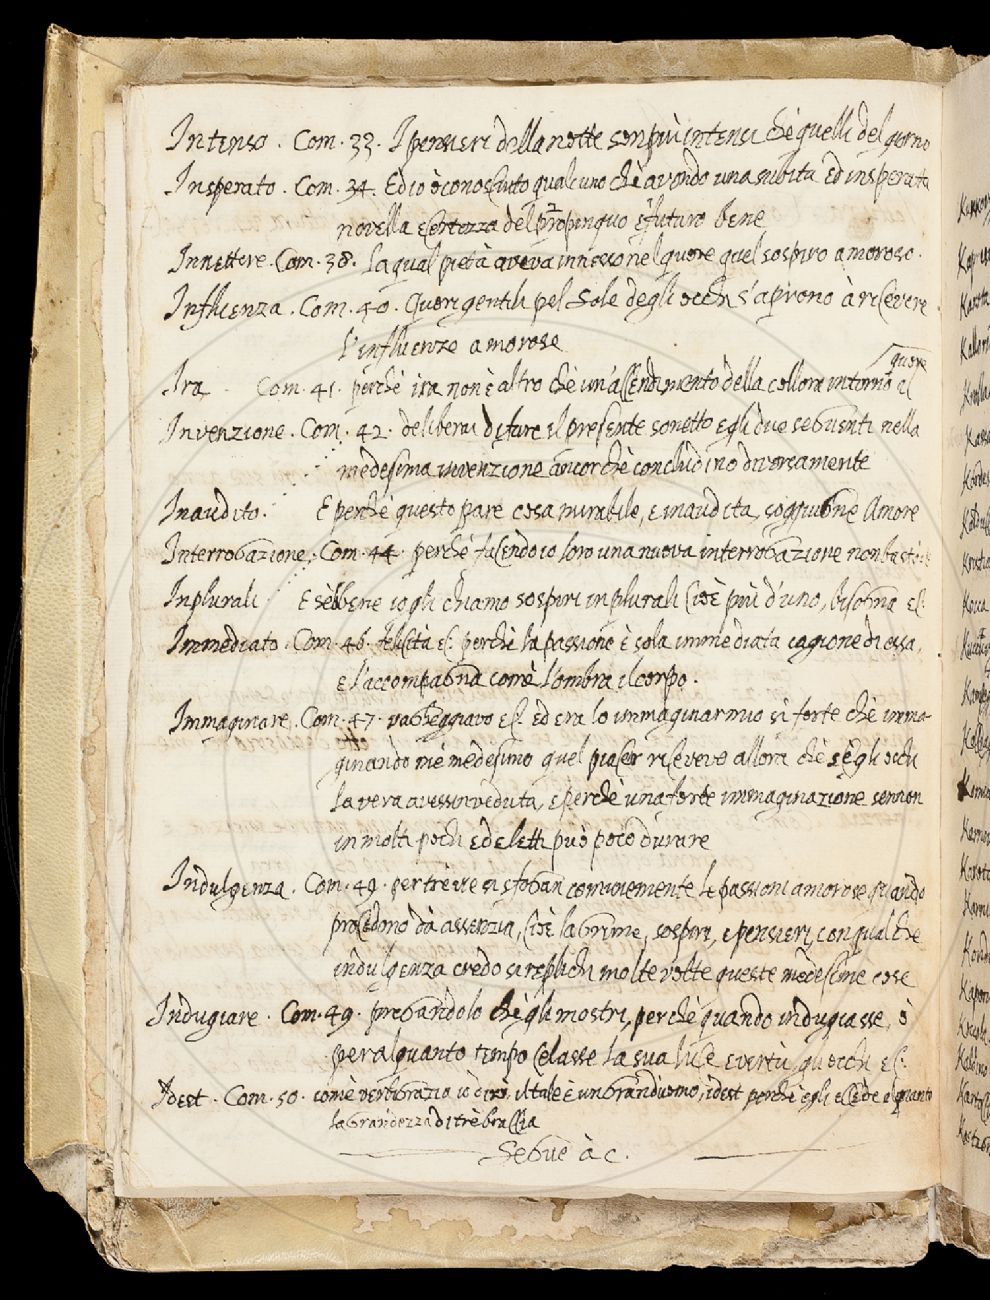 Intenso. Com. 33. I pensieri della notte son più intensi chè quelli del giorno
Insperato. Com. 34. Ed io ò conosciuto qualcuno chè avendo una subita ed insperata
novella e certezza del propinquo e futuro bene
Innettere. Com. 38. La qual pietà aveva innesso nel quore quel sospiro amoroso.
Influenza. Com. 40. Quori gentili pel Sole degli occhi s'aprono à ricevere
l'influenze amorose
Ira. Com. 41. perchè ira non è altro chè un'accendimento della collora intorno el quore
Invenzione. Com. 42. deliberai di fare il presente sonetto e gli due seguenti nella
medesima invenzione ancorchè concludino diversamente
Inaudito. E perchè questo pare cosa mirabile, e inaudita, soggiugne Amore
Interrogazione. Com. 44. perchè facendo io loro una nuova interrogazione non bastò
Inplurali E sebbene io gli chiamo sospiri inplurali cioè più d'uno, bisogna ec:
Immediato. Com. 46. felicità ec: perchè la passione è sola immediata cagione di essa,
e l'accompagna come l'ombra il corpo.
Immaginare. Com. 47. vagheggiavo ec: ed era lo immaginar mio sì forte chè imma-
ginando me medesimo quel piacer riceveve allora chè se gli occhi
la vera avessin veduta, e perchè una forte immaginazione se non
in molti pochi ed eletti può poco durare
Indulgenza. Com. 49. per trè vie si sfogan comunemente le passioni amorose quando
procedono dà assenzia, cioè lagrime, sospiri, e pensieri, con qualche
indulgenza credo si replichi molte volte queste medesime cose
Indugiare. Com. 49. pregandolo chè gli mostri, perchè quando indugiasse, ò
per alquanto tempo celasse la sua luce e vertù, gli occhi ec:
Idest. Com. 50. come verbigrazia io dirò: il tale è un grand'uomo, idest perchè egli eccede el quanto
la grandezza di trè braccia
Segue à c.